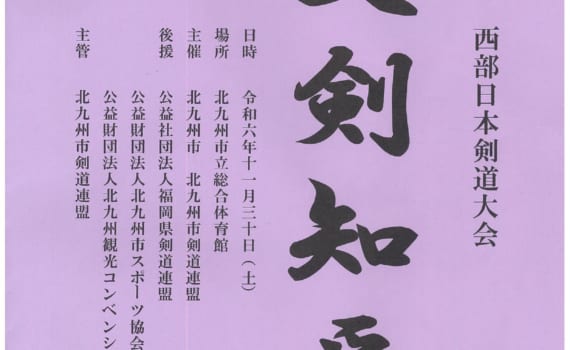 西部日本剣道大会
剣知
日時 令和六年十一月三十日(土)
場所 北九州市立総合体育館
主催 北九州市 北九州市剣道連盟
後援 公益社団法人福岡県剣道連盟
公益財団法人北九州市スポーツ協会
公益財団法人北九州観光コンベンシ
主管 北九州市剣道連盟